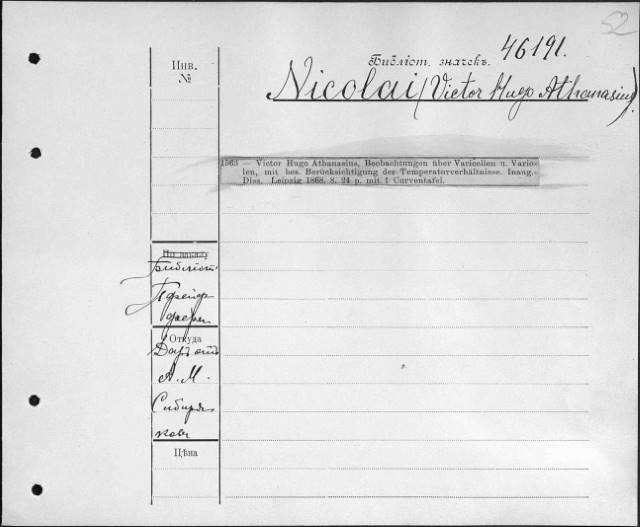 52
46191.
Библіот. значекъ.
Инв.
№
Nicolai (Victor Hugo Athanasius).
1563 — Victor Hugo Athanasius, Beobachtungen über Varicellen u. Vario-
len, mit bes. Berücksichtigung der Temperaturverhältnisse. Inaug.-
Diss. Leipzig 1868. 8. 24 p. mit 1 Curventafel.
Библіот.
Пфейф
фера
Откуда
Даръ отъ
А. М.
Сибиря
кова
Цѣна